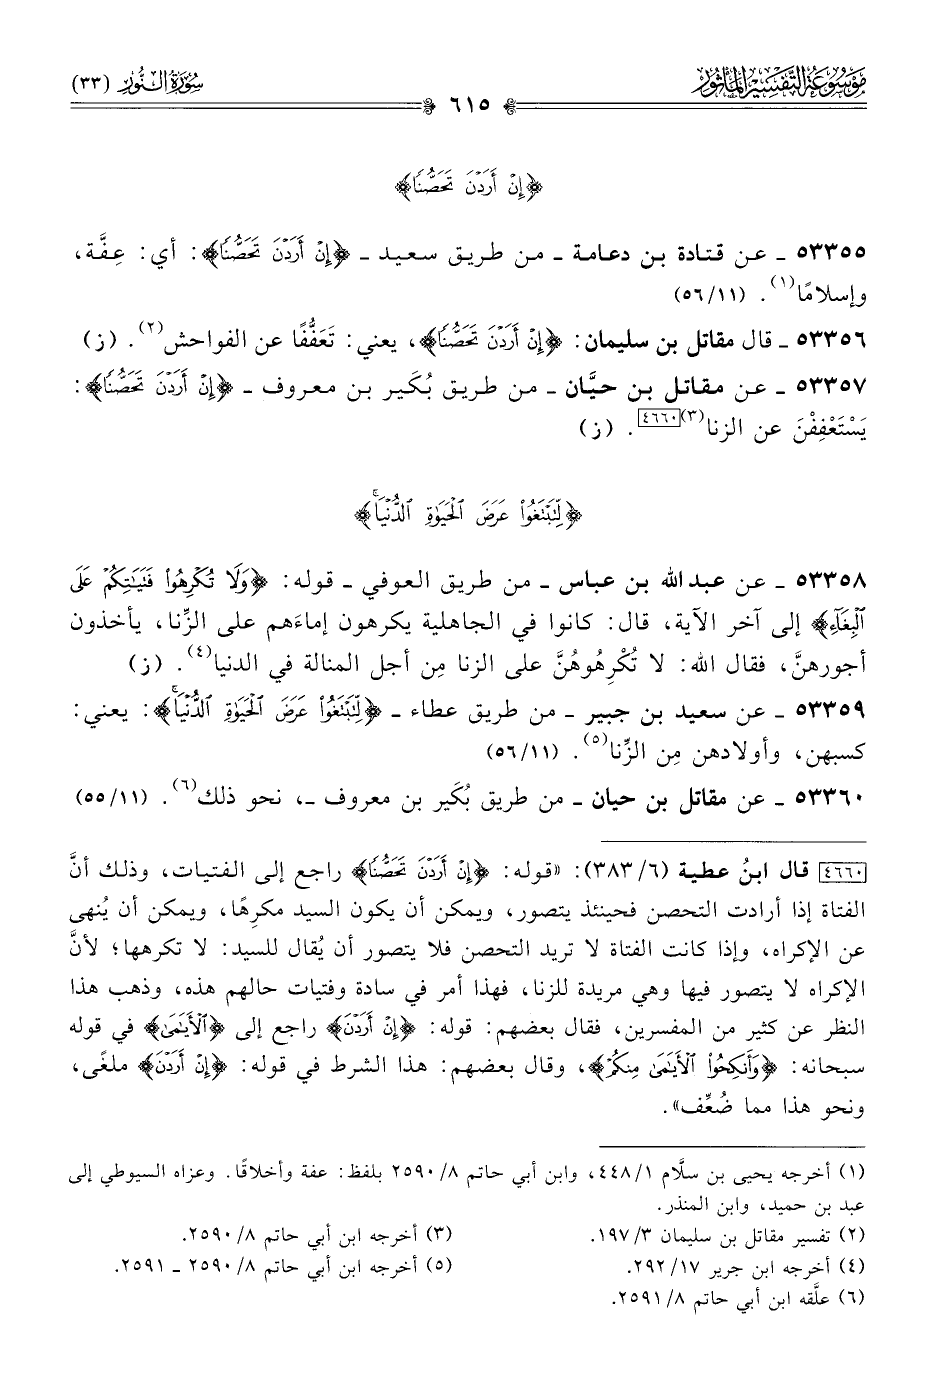 مَوْسُوعَةُ التَّفْسِيرِ المَأْثُور
سُورَةُ النُّورِ (٣٣)
٦١٥
﴿إِنْ أَرَدْنَ تَحَصُّنًا﴾
٥٣٣٥٥ ـ عن قتادة بن دعامة ـ من طريق سعيد ـ ﴿إِنْ أَرَدْنَ تَحَصُّنًا﴾: أي: عِفَّة،
وإسلامًا(١). (٥٦/١١)
٥٣٣٥٦ ـ قال مقاتل بن سليمان: ﴿إِنْ أَرَدْنَ تَحَصُّنًا﴾، يعني: تَعَفُّفًا عن الفواحش(٢). (ز)
٥٣٣٥٧ ـ عن مقاتل بن حيَّان ـ من طريق بُكَير بن معروف ـ ﴿إِنْ أَرَدْنَ تَحَصُّنًا﴾:
يَسْتَعْفِفْنَ عن الزنا(٣)[٤٦٦٠]. (ز)
﴿لِّتَبْتَغُوا۟ عَرَضَ ٱلْحَيَوٰةِ ٱلدُّنْيَا ۚ﴾
٥٣٣٥٨ ـ عن عبد الله بن عباس ـ من طريق العوفي ـ قوله: ﴿وَلَا تُكْرِهُوا۟ فَتَيَـٰتِكُمْ عَلَى
ٱلْبِغَآءِ﴾ إلى آخر الآية، قال: كانوا في الجاهلية يكرهون إماءَهم على الزِّنا، يأخذون
أجورهنَّ، فقال الله: لا تُكْرِهُوهُنَّ على الزنا مِن أجل المنالة في الدنيا(٤). (ز)
٥٣٣٥٩ ـ عن سعيد بن جبير ـ من طريق عطاء ـ ﴿لِّتَبْتَغُوا۟ عَرَضَ ٱلْحَيَوٰةِ ٱلدُّنْيَا ۚ﴾: يعني:
كسبهن، وأولادهن مِن الزِّنا(٥). (٥٦/١١)
٥٣٣٦٠ ـ عن مقاتل بن حيان ـ من طريق بُكَير بن معروف ـ، نحو ذلك(٦). (٥٥/١١)
[٤٦٦٠] قال ابنُ عطية (٣٨٣/٦): «قوله: ﴿إِنْ أَرَدْنَ تَحَصُّنًا﴾ راجع إلى الفتيات، وذلك أنَّ
الفتاة إذا أرادت التحصن فحينئذ يتصور، ويمكن أن يكون السيد مكرِهًا، ويمكن أن يُنهى
عن الإكراه، وإذا كانت الفتاة لا تريد التحصن فلا يتصور أن يُقال للسيد: لا تكرهها؛ لأنَّ
الإكراه لا يتصور فيها وهي مريدة للزنا، فهذا أمر في سادة وفتيات حالهم هذه، وذهب هذا
النظر عن كثير من المفسرين، فقال بعضهم: قوله: ﴿إِنْ أَرَدْنَ﴾ راجع إلى ﴿ٱلْأَيَـٰمَىٰ﴾ في قوله
سبحانه: ﴿وَأَنكِحُوا۟ ٱلْأَيَـٰمَىٰ مِنكُمْ﴾، وقال بعضهم: هذا الشرط في قوله: ﴿إِنْ أَرَدْنَ﴾ ملغًى،
ونحو هذا مما ضُعِّف».
(١) أخرجه يحيى بن سلَّام ٤٤٨/١، وابن أبي حاتم ٢٥٩٠/٨ بلفظ: عفة وأخلاقًا. وعزاه السيوطي إلى
عبد بن حميد، وابن المنذر.
(٢) تفسير مقاتل بن سليمان ١٩٧/٣.
(٣) أخرجه ابن أبي حاتم ٢٥٩٠/٨.
(٤) أخرجه ابن جرير ٢٩٢/١٧.
(٥) أخرجه ابن أبي حاتم ٢٥٩٠/٨ ـ ٢٥٩١.
(٦) علَّقه ابن أبي حاتم ٢٥٩١/٨.